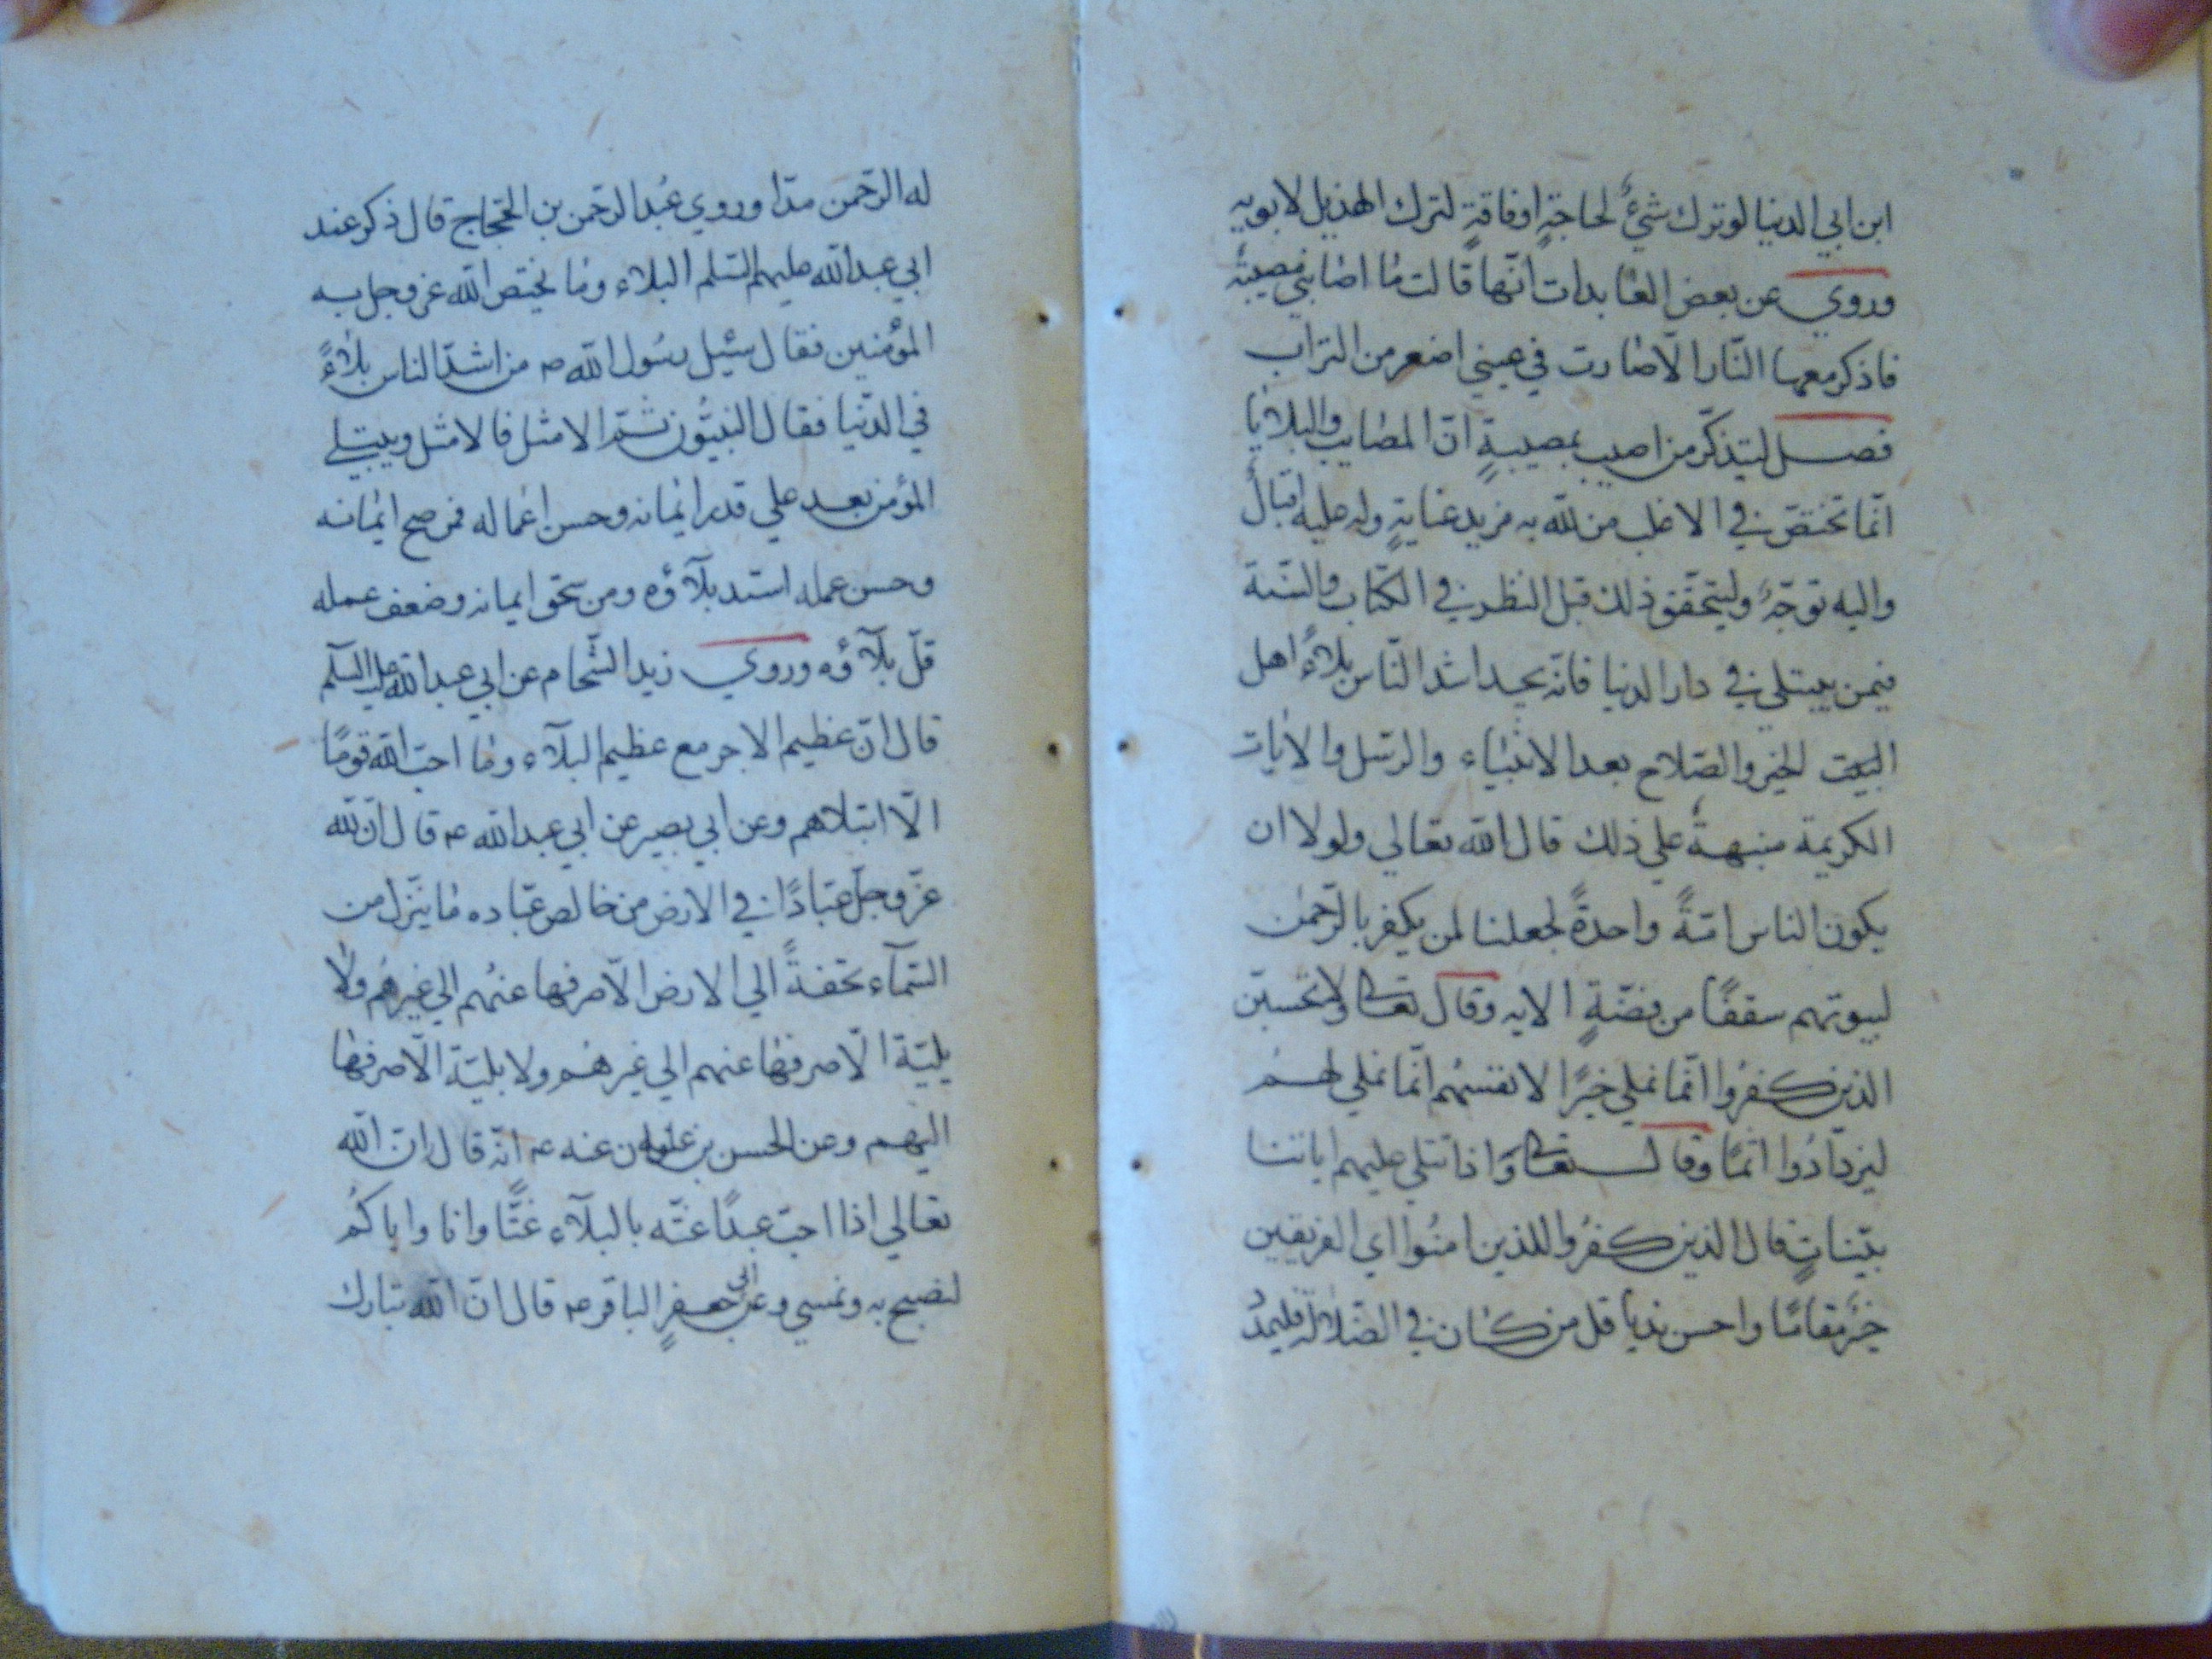 ابن ابي الدنيا لو ترك شيءٌ لحاجةٍ او فاقةٍ لترك الهذيل لابويه
وروي عن بعض العابدات انّها قالت ما اصابتني مصيبةٌ
فاذكر معها النّار الّا صارت في عيني اصغر من التراب
فصل ليتذكّر من اصيب بمصيبةٍ انّ المصايب والبلايا
انّما تختصّ في الاغلب من لله به مزيد عنايةٍ وله عليه اقبالٌ
واليه توجّهٌ وليتحقّق ذلك قبل النظر في الكتاب والسّنة
فيمن يبتلي في دار الدنيا فانّه يجد اشد النّاس بلاءً اهل
البيت الخير والصّلاح بعد الانبياء والرسل والايات
الكريمة منبهةٌ علي ذلك قال الله تعالي ولولا ان
يكون الناس امّةً واحدةً لجعلنا لمن يكفر بالرّحمن
لبيوتهم سقفًا من فضّةٍ الايه وقال تعالى ولا تحسبنّ
الذين كفرُوا انّما نملي خيرًا لانفسهُم انّما نملي لهم
ليزدادُوا اثمًا وقال تعالى وَاذا تتلي عليهم اياتنا
بيّناتٍ قال الذين كفرُوا للذين امنُوا اي الفريقين
خيرٌ مقامًا واحسن نديا قل من كان في الضّلالة فليمدُد
له الرّحمن مدّا وروي عبُد الرحمن بن الحجّاج قال ذكر عند
ابي عبد الله عليهم السّلم البلاء وما يختص الله عز وجل به
المؤمنين فقال سئيل رسُول الله ص من اشدّ الناس بلاءً
في الدّنيا فقال النبيّون ثمّ الامثل فالامثل ويبتلي
المؤمن بعد علي قدر ايمانه وحسن اعماله فمن صح ايمانه
وحسن عمله اشتد بلآؤه ومن سخف ايمانه وضعف عمله
قلّ بلآؤه وروي زيد الشّحام عن ابي عبد الله عليه السّلم
قال انّ عظيم الاجر مع عظيم البلآء وما احبّ الله قومًا
الّا ابتلاهم وعن ابي بصير عن ابي عبد الله ع قال انّ لله
عزّ وجلّ عبادًا في الارض من خالص عباده ما ينزل من
السّمآء تحفةً الي الارض الّا صرفها عنهُم الي غيرهُم ولا
بليّة الّا صرفها عنهم الي غيرهُم ولا بليّة الّا صرفها
اليهم وعن الحسن بن علوان عنه ع انّه قال ان الله
تعالي اذا احبّ عبدًا غتّه بالبلآء غتًّا وانا واياكُم
لنصبح به ونمسي وعن ابي جعفرٍ الباقر ع قال انّ الله تبارك